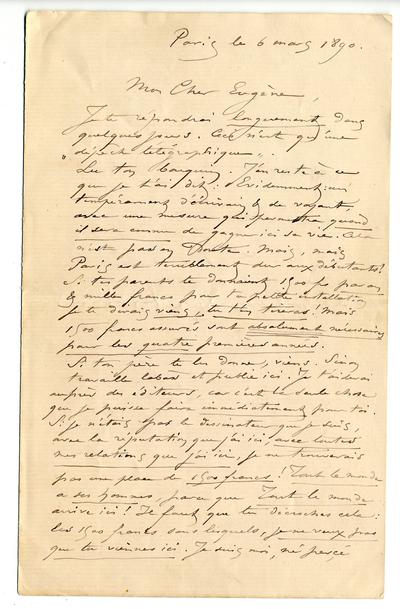 Paris le 6 mars 1890.
Mon Cher Eugène,
Je te répondrai longuement dans
quelques jours. Ceci n'est qu'une
"dépêch télégraphique".
Lu ton bouquin. J'en reste à ce
que je t'ai dit : Evidemment, un
tempérament d'écrivain & de voyant
avec une mesure qui permettra quand
il sera connu de gagner ici sa vie. Cela
n'est pas en Doute. Mais, mais
Paris est terriblement dur aux débutants !
Si tes parents te donnaient 1500 fs par an
& mille francs pour ta petite installation
je te dirais viens, tu t'en tireras ! Mais
1500 francs assurés sont absolument nécessaires
pour les quatre premières années.
Si ton père te les donne, viens. Sinon
travaille labas et publie ici. Je t'aiderai
auprès des éditeurs, car c'est la seule chose
que je puisse faire immédiatement pour toi.
Si je n'étais pas le dessinateur que je suis,
avec la réputation que j'ai ici, avec toutes
mes relations que j'ai ici, je ne trouverais
pas une place de 1500 francs ! Tout le monde
a ses hommes, parce que Tout le monde
arrive ici ! Il faut que tu décroches cela :
les 1500 francs sans lesquels, je ne veux pas
que tu viennes ici. Je suis moi, né